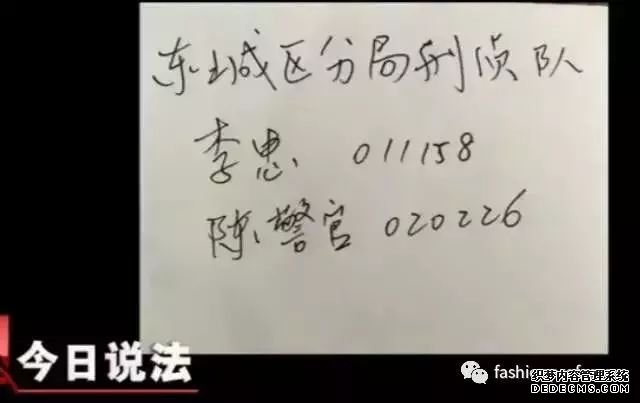 东城区分局刑侦队
李忠 011158
陈警官 020226
今日说法
fashion
织梦内容管理系统
DEDECMS.COM